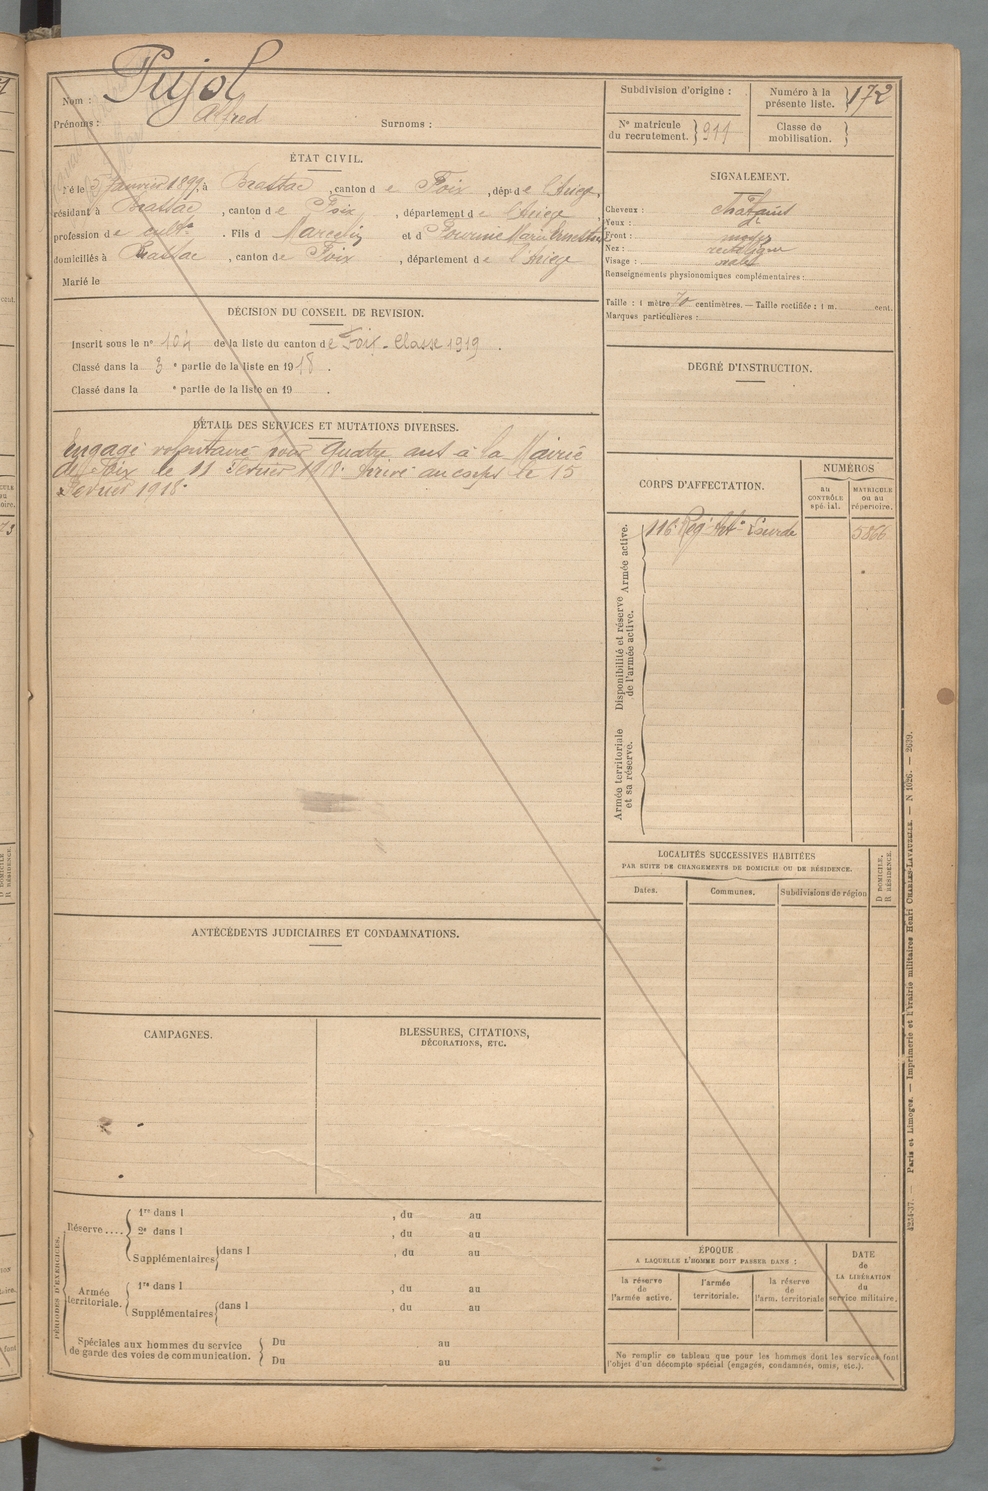 Nom : Pujol
Prénoms : Alfred Surnoms :
Subdivision d'origine :
Numéro à la présente liste. 172
N° matricule du recrutement. 911
Classe de mobilisation.
ÉTAT CIVIL.
Né le janvier 1899, à Brassac, canton de Foix, dépt de l'Ariège,
résidant à Brassac, canton de Foix, département de l'Ariège,
profession de cultr. Fils de Marcelin et de Marie Ernestine
domiciliés à Brassac, canton de Foix, département de l'Ariège
Marié le
SIGNALEMENT.
Cheveux : Châtains
Yeux : d°
Front : moyen
Nez : rectiligne
Visage : ovale
Renseignements physionomiques complémentaires :
Taille : 1 mètre 70 centimètres. — Taille rectifiée : 1 m. cent.
Marques particulières :
DÉCISION DU CONSEIL DE REVISION.
Inscrit sous le n° 104 de la liste du canton de Foix - Classe 1919.
Classé dans la 3e partie de la liste en 1918.
Classé dans la e partie de la liste en 19 .
DEGRÉ D'INSTRUCTION.
DÉTAIL DES SERVICES ET MUTATIONS DIVERSES.
Engagé volontaire pour quatre ans à la Mairie
de Foix le 11 Février 1918. Arrivé au corps le 15
Février 1918.
CORPS D'AFFECTATION.
NUMÉROS
au CONTRÔLE spécial.
MATRICULE ou au répertoire.
Armée active.
116 Reg. Arte Lourde 5866
Disponibilité et réserve de l'armée active.
Armée territoriale et sa réserve.
LOCALITÉS SUCCESSIVES HABITÉES
PAR SUITE DE CHANGEMENTS DE DOMICILE OU DE RÉSIDENCE.
Dates. Communes. Subdivisions de région
D DOMICILE.
R RÉSIDENCE.
ANTÉCÉDENTS JUDICIAIRES ET CONDAMNATIONS.
CAMPAGNES.
BLESSURES, CITATIONS,
DÉCORATIONS, ETC.
PÉRIODES D'EXERCICES.
Réserve ....
1re dans l , du au
2e dans l , du au
Supplémentaires dans l , du au
Armée territoriale.
1re dans l , du au
Supplémentaires dans l , du au
Spéciales aux hommes du service
de garde des voies de communication.
Du au
Du au
ÉPOQUE
A LAQUELLE L'HOMME DOIT PASSER DANS :
la réserve de l'armée active.
l'armée territoriale.
la réserve de l'arm. territoriale
DATE de LA LIBÉRATION du service militaire.
Ne remplir ce tableau que pour les hommes dont les services font
l'objet d'un décompte spécial (engagés, condamnés, omis, etc.).
Paris et Limoges. — Imprimerie et librairie militaires Henri CHARLES-LAVAUZELLE. — N 1026. — 2639.